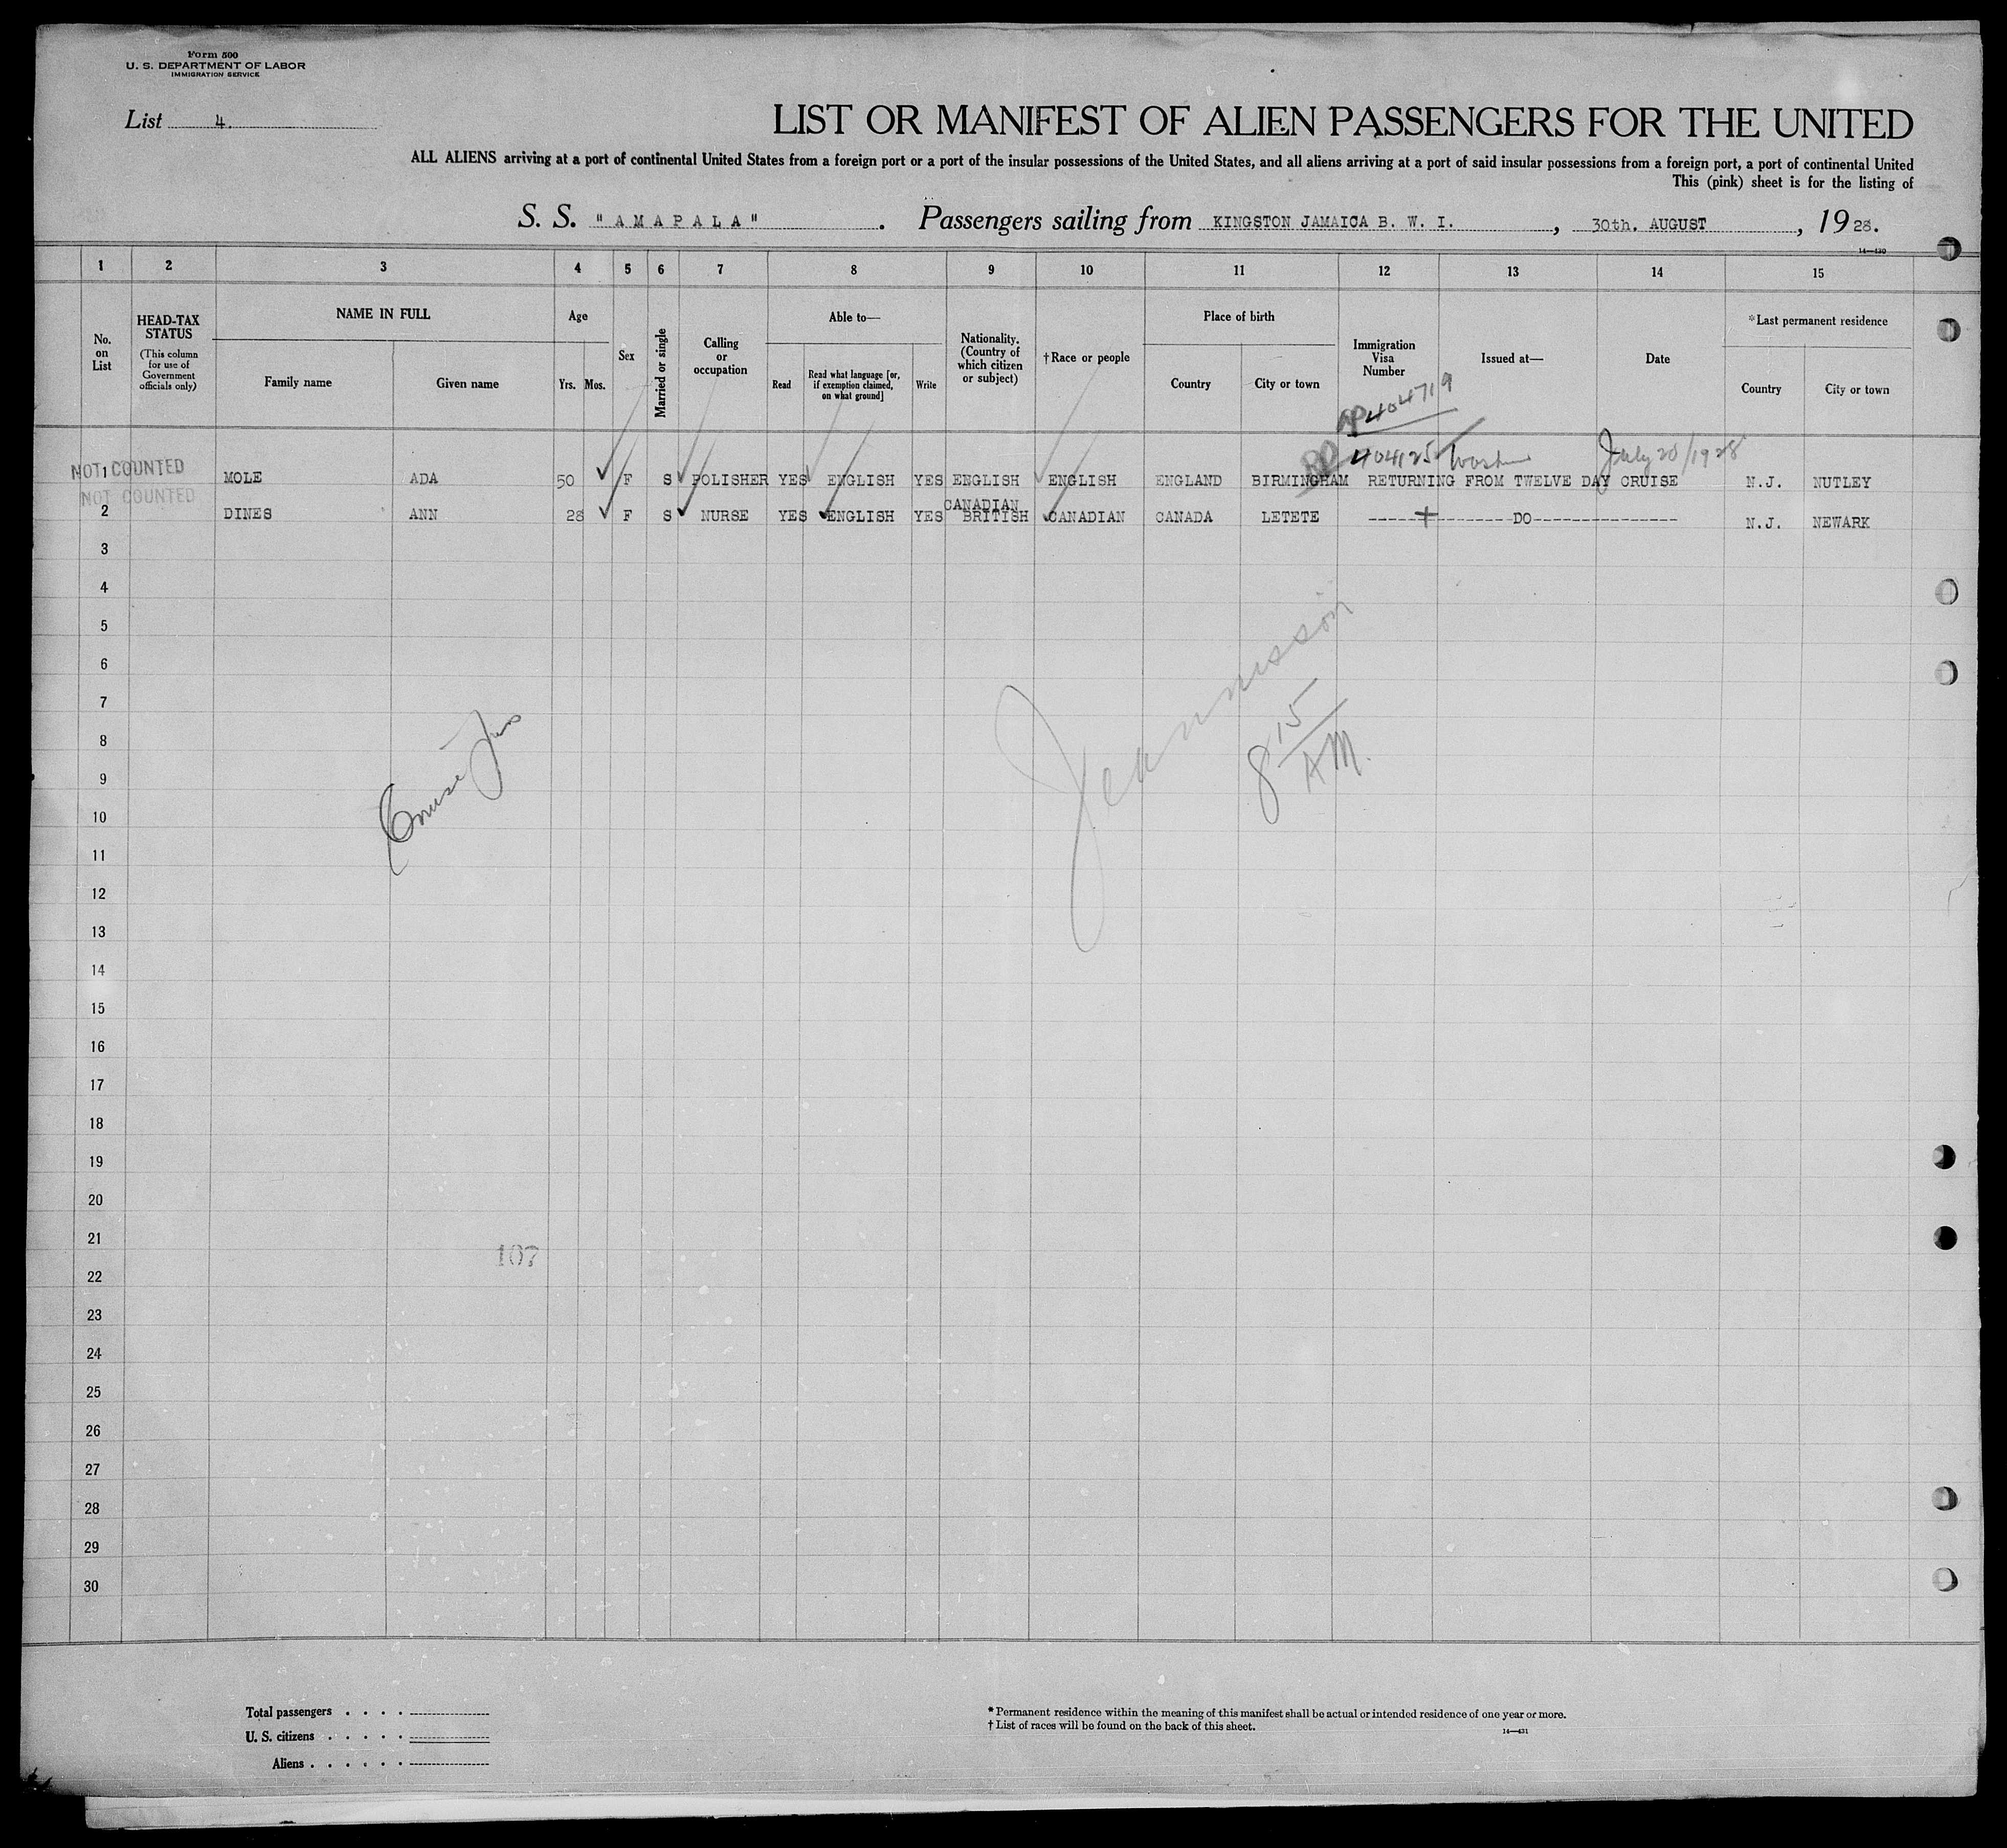 Form 500
U. S. DEPARTMENT OF LABOR
IMMIGRATION SERVICE
List 4.
LIST OR MANIFEST OF ALIEN PASSENGERS FOR THE UNITED
ALL ALIENS arriving at a port of continental United States from a foreign port or a port of the insular possessions of the United States, and all aliens arriving at a port of said insular possessions from a foreign port, a port of continental United
This (pink) sheet is for the listing of
S. S. "AMAPALA". Passengers sailing from KINGSTON JAMAICA B. W. I., 30th. AUGUST, 1928.
14—430
1 2 3 4 5 6 7 8 9 10 11 12 13 14 15
No. on List
HEAD-TAX STATUS
(This column for use of Government officials only)
NAME IN FULL
Family name
Given name
Age
Yrs. Mos.
Sex
Married or single
Calling or occupation
Able to—
Read
Read what language [or, if exemption claimed, on what ground]
Write
Nationality. (Country of which citizen or subject)
†Race or people
Place of birth
Country
City or town
Immigration Visa Number
Issued at—
Date
*Last permanent residence
Country
City or town
404719
RP 404125 Wash July 20/1928
NOT COUNTED
1 MOLE ADA 50 F S POLISHER YES ENGLISH YES ENGLISH ENGLISH ENGLAND BIRMINGHAM RETURNING FROM TWELVE DAY CRUISE N.J. NUTLEY
NOT COUNTED
CANADIAN
2 DINES ANN 28 F S NURSE YES ENGLISH YES BRITISH CANADIAN CANADA LETETE -----+--------DO--------------- N.J. NEWARK
3
4
5
6
7
8
9
10
11
12
13
14
15
16
17
18
19
20
21
22
23
24
25
26
27
28
29
30
8 15 AM.
107
Total passengers . . . .
U. S. citizens . . . . .
Aliens . . . . . .
*Permanent residence within the meaning of this manifest shall be actual or intended residence of one year or more.
†List of races will be found on the back of this sheet.
14—431